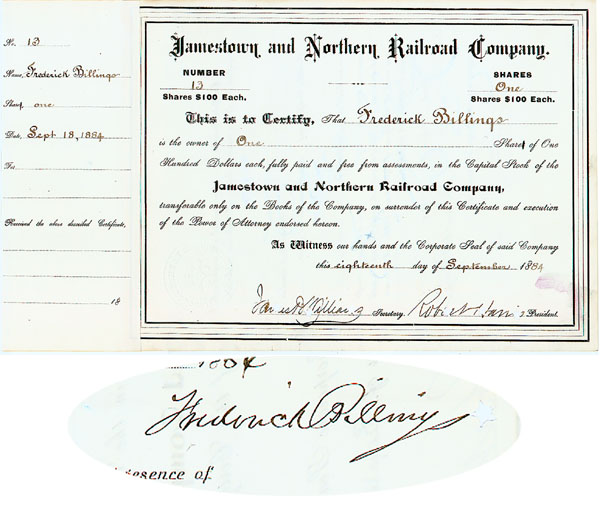 No. 13
Name, Frederick Billings
Share, one
Date, Sept 18, 1884
To
Received the above described Certificate,
18
Jamestown and Northern Railroad Company.
NUMBER
13
Shares $100 Each.
SHARES
One
Shares $100 Each.
This is to Certify, That Frederick Billings
is the owner of One Share of One
Hundred Dollars each, fully paid and free from assessments, in the Capital Stock of the
Jamestown and Northern Railroad Company,
transferable only on the Books of the Company, on surrender of this Certificate and execution
of the Power of Attorney endorsed hereon.
As Witness our hands and the Corporate Seal of said Company
this eighteenth day of September 1884
Secretary. Robert Harris President.
1884
Frederick Billings
esence of